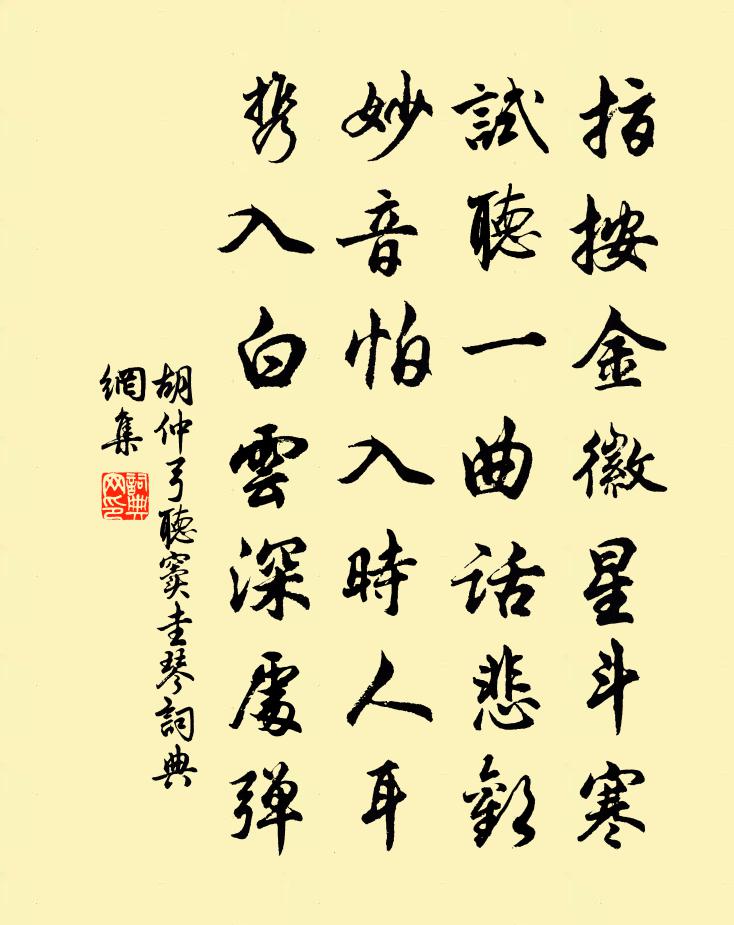 指按金徽星斗寒
試聽一曲話悲歡
妙音怕入時人耳
携入白雲深處弹
胡仲弓聽竇圭琴詞典
網集
詞典網印